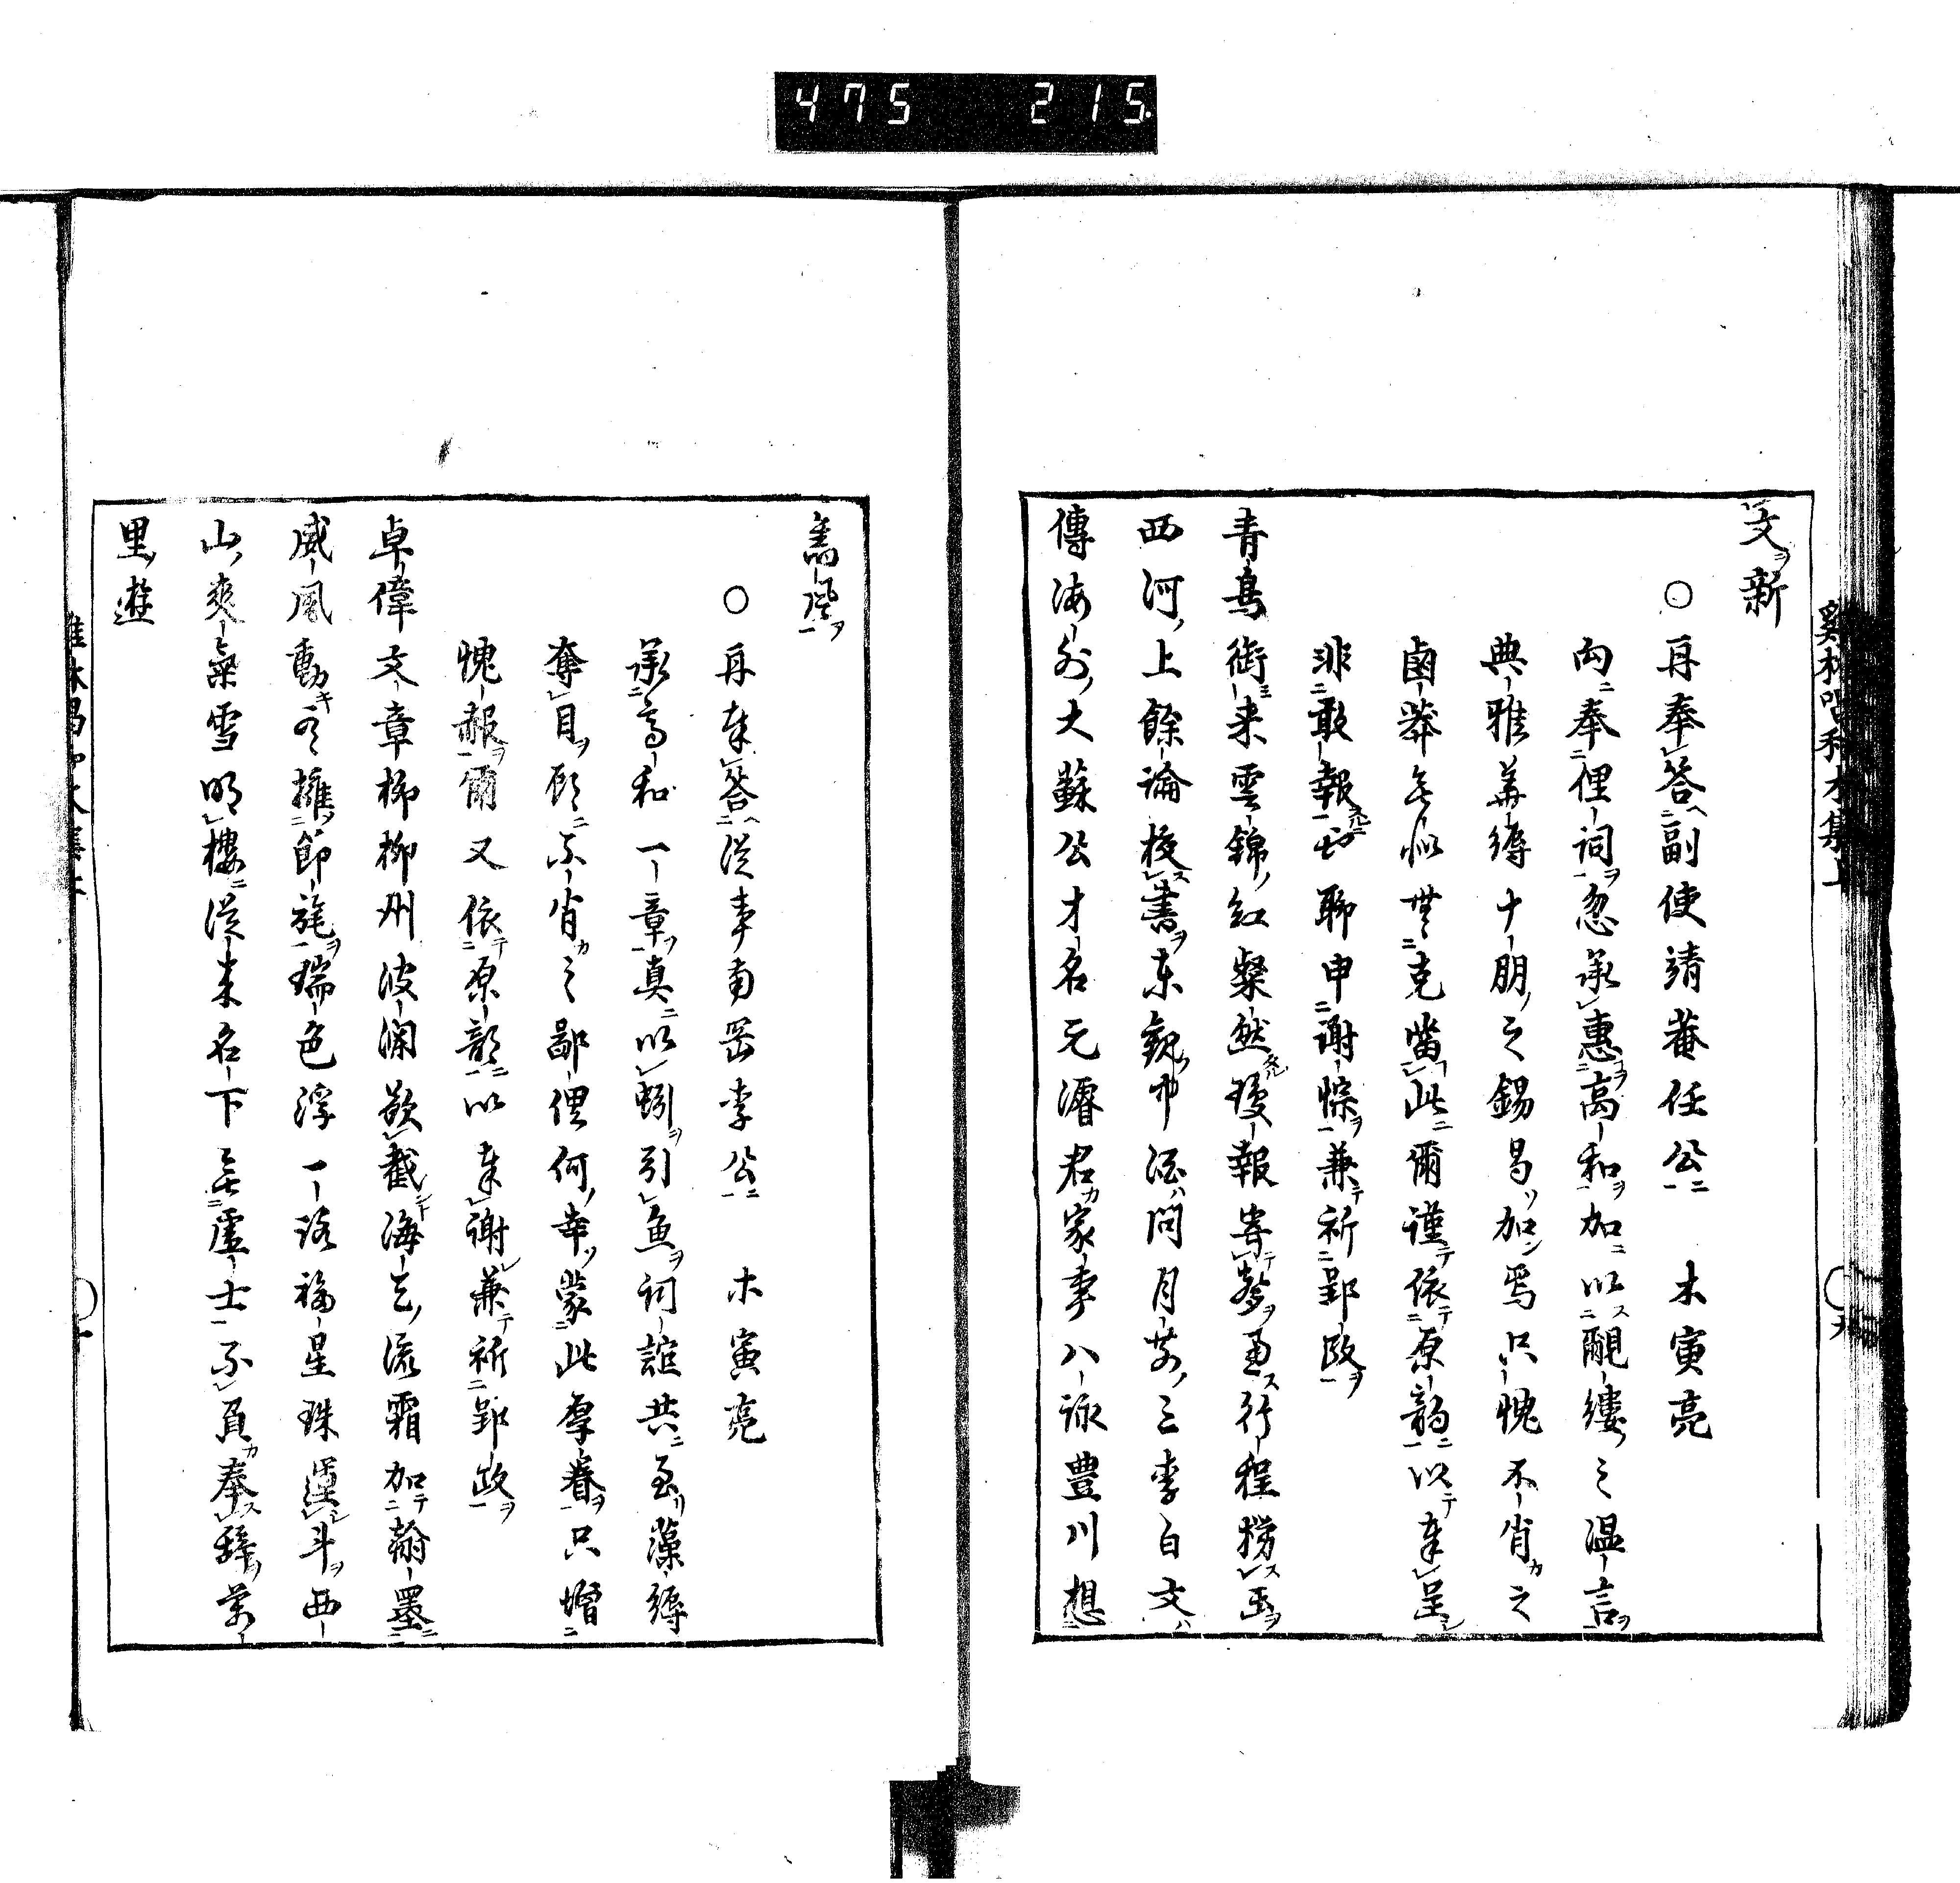 475 215
雞林唱和 集上
文新
○再奉答副使靖菴任公 木寅亮
向奉俚詞忽承惠高和加以覼縷之温言
典雅并得十朋之錫曷加焉只愧不肖之
鹵莽無似世克當此爾謹依原韵以奉呈
非敢報也聊申謝悰兼祈郢政
青鳥銜来雲錦紅粲然瓊報寄 行程 玉
西河上餘論校書东 中酒問月 三李白文
傳海外大蘇公才名元 君家事八詠豊川想
舊
○再奉答從事南岡李公 木寅亮
承高和一章真以蚓引魚詞誼共至藻
奪目顧不肖之鄙俚何幸蒙此厚眷只增
愧赧爾又依原韻以奉謝兼祈郢政
卓偉文章柳柳州波瀾欲截海 流霜加翰墨
威風動 擁節旄瑞色浮一路福星珠 斗西
山爽氣雪明樓從来名下無虚士不負奉 萬
里遊